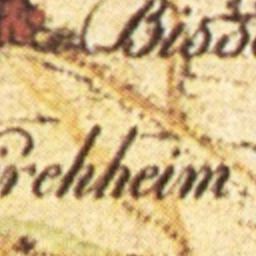 Biss
irchheim